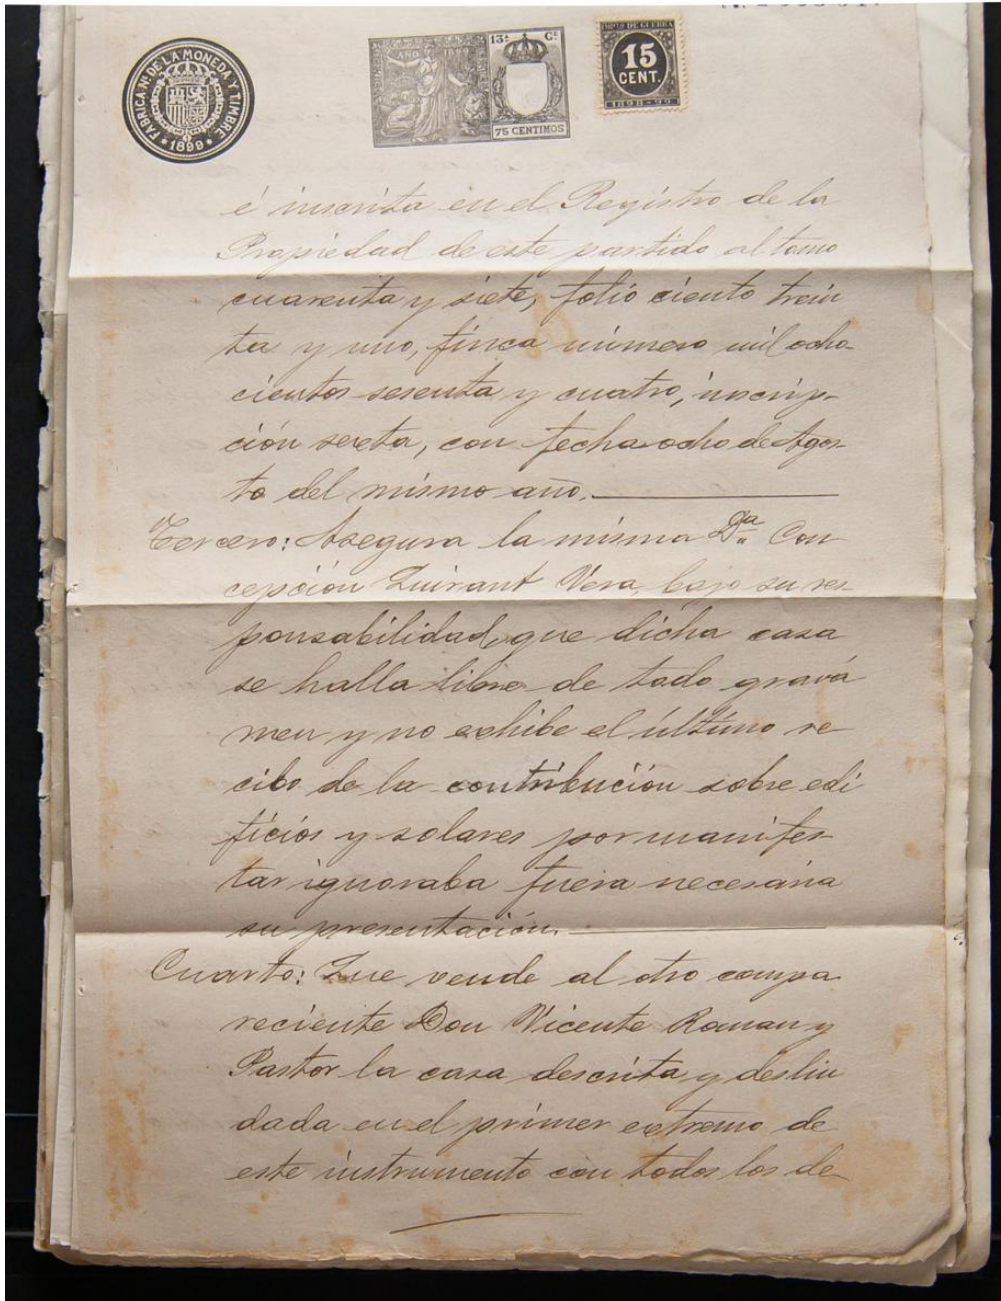 FABRICA Nl. DE LA MONEDA Y TIMBRE
1899
AÑO 1899
13ª Cl.
75 CENTIMOS
IMPTO DE GUERRA
15
CENT.
1898-99
é inscrita en el Registro de la
Propiedad de este partido al tomo
cuarenta y siete, folio ciento trein
ta y uno, finca número mil ocho-
cientos sesenta y cuatro, inscrip-
ción sexta, con fecha ocho de Agos-
to del mismo año.
Tercero: Asegura la misma Dª Con
cepción Quirant Vera, bajo su res-
ponsabilidad, que dicha casa
se halla libre de todo gravá
men y no exhibe el último re
cibo de la contribución sobre edi
ficios y solares por manifes
tar ignoraba fuera necesaria
su presentación.
Cuarto: Que vende al otro compa
reciente Don Vicente Roman y
Pastor la casa descrita y deslin
dada en el primer extremo de
este instrumento con todos los de